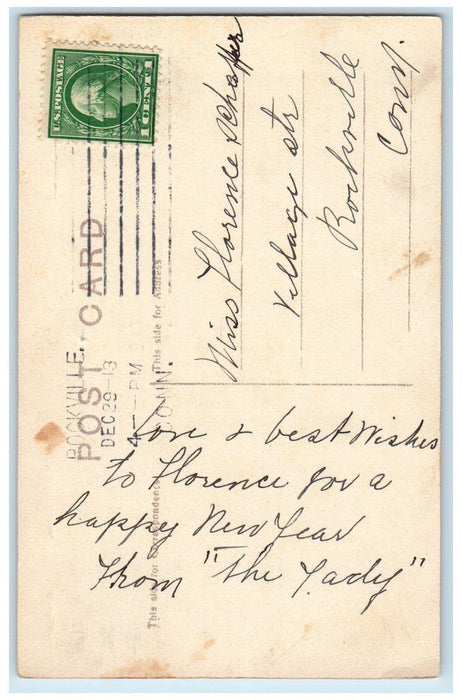 U.S. POSTAGE
1 CENT 1
POST CARD
ROCKVILLE,
DEC 29-13
4 — PM
CONN.
This side for Address
This side for Correspondence
Miss Florence Schaffer
Village str
Rockville
Conn.
Love & best Wishes
to Florence for a
happy New Year
From "The Lady"